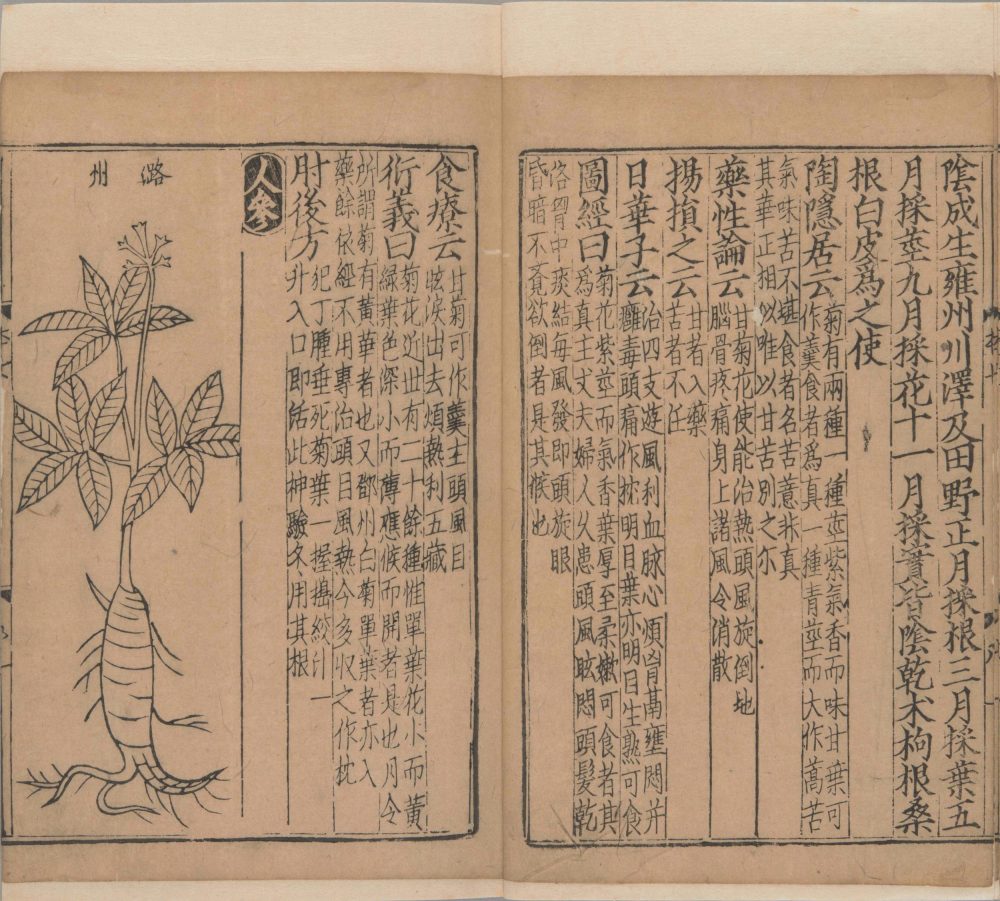 陰成生雍州川澤及田野正月採根三月採葉五
月採莖九月採花十一月採實皆陰乾术枸根桑
根白皮爲之使
陶隱居云
菊有兩種一種莖紫氣香而味甘葉可
作羹食者爲真一種青莖而大作蒿苦
氣味苦不堪食者名苦薏非真
其華正相似唯以甘苦別之尔
藥性論云
甘菊花使能治熱頭風旋倒地
腦骨疼痛身上諸風令消散
楊損之云
甘者入藥
苦者不任
日華子云
治四支遊風利血脉心煩胷膈壅悶并
癰毒頭痛作枕明目葉亦明目生熟可食
圖經曰
菊花紫莖而氣香葉厚至柔嫩可食者其
爲真主丈夫婦人久患頭風眩悶頭髮乾
洛胷中痰結每風發即頭旋眼
昏暗不覺欲倒者是其候也
食療云
甘菊可作羹主頭風目
眩淚出去煩熱利五藏
衍義曰
菊花近世有二十餘種惟單葉花小而黃
綠葉色深小而薄應候而開者是也月令
所謂菊有黃華者也又鄧州白菊單葉者亦入
藥餘依經不用專治頭目風熱今多収之作枕
肘後方
犯丁腫垂死菊葉一握搗絞汁一
升入口即活此神驗冬用其根
人參
潞州